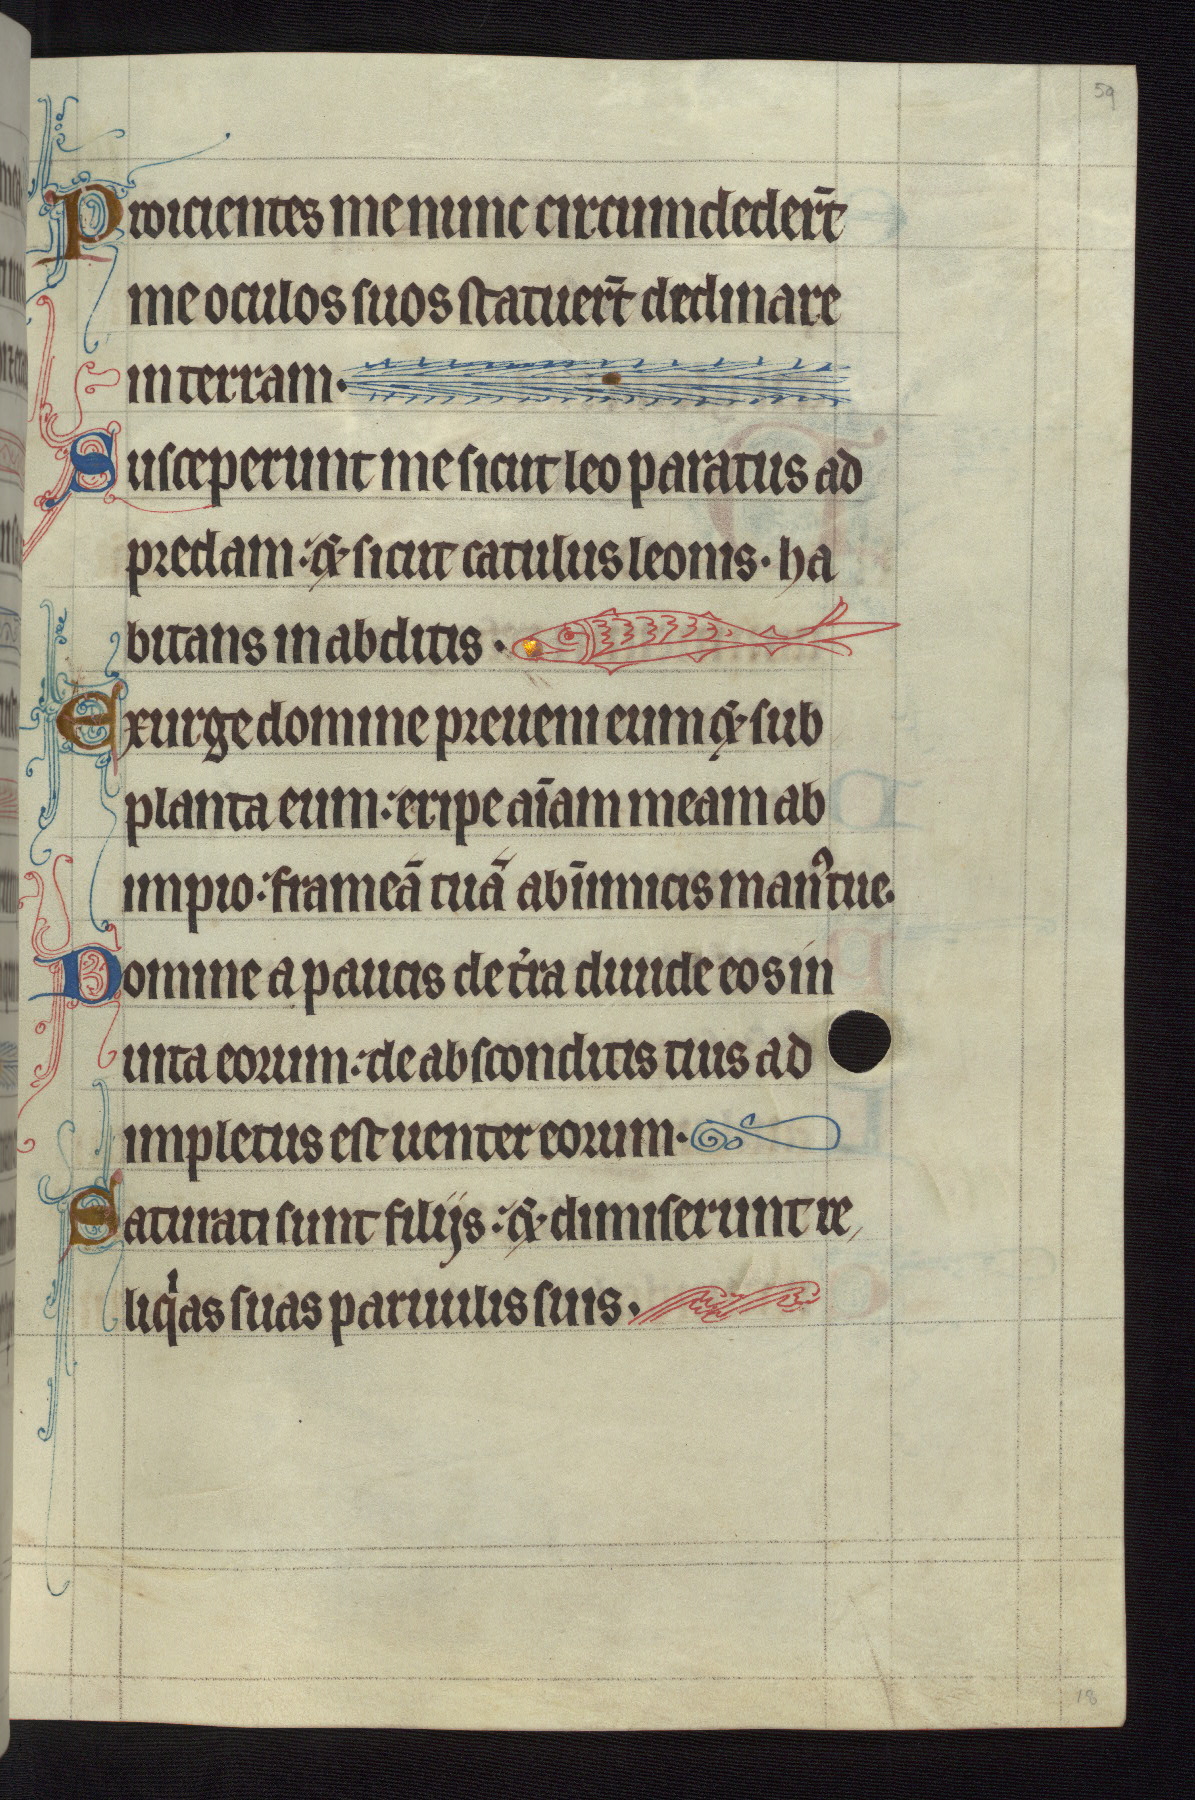 59
Proicientes me nunc circumdeder̄t
me oculos suos statuer̄t declinare
in terram·
Susceperunt me sicut leo paratus ad
predam: & sicut catulus leonis· ha
bitans in abditis·
Exurge domine preueni eum & sub
planta eum: eripe aīam meam ab
impio: frameā tuā ab īimicis manꝰ tue·
Domine a paucis de t̉ra diuide eos in
uita eorum: de absconditis tuis ad
impletus est uenter eorum·
Saturati sunt filijs: & dimiserunt re
liqͥas suas paruulis suis·
18